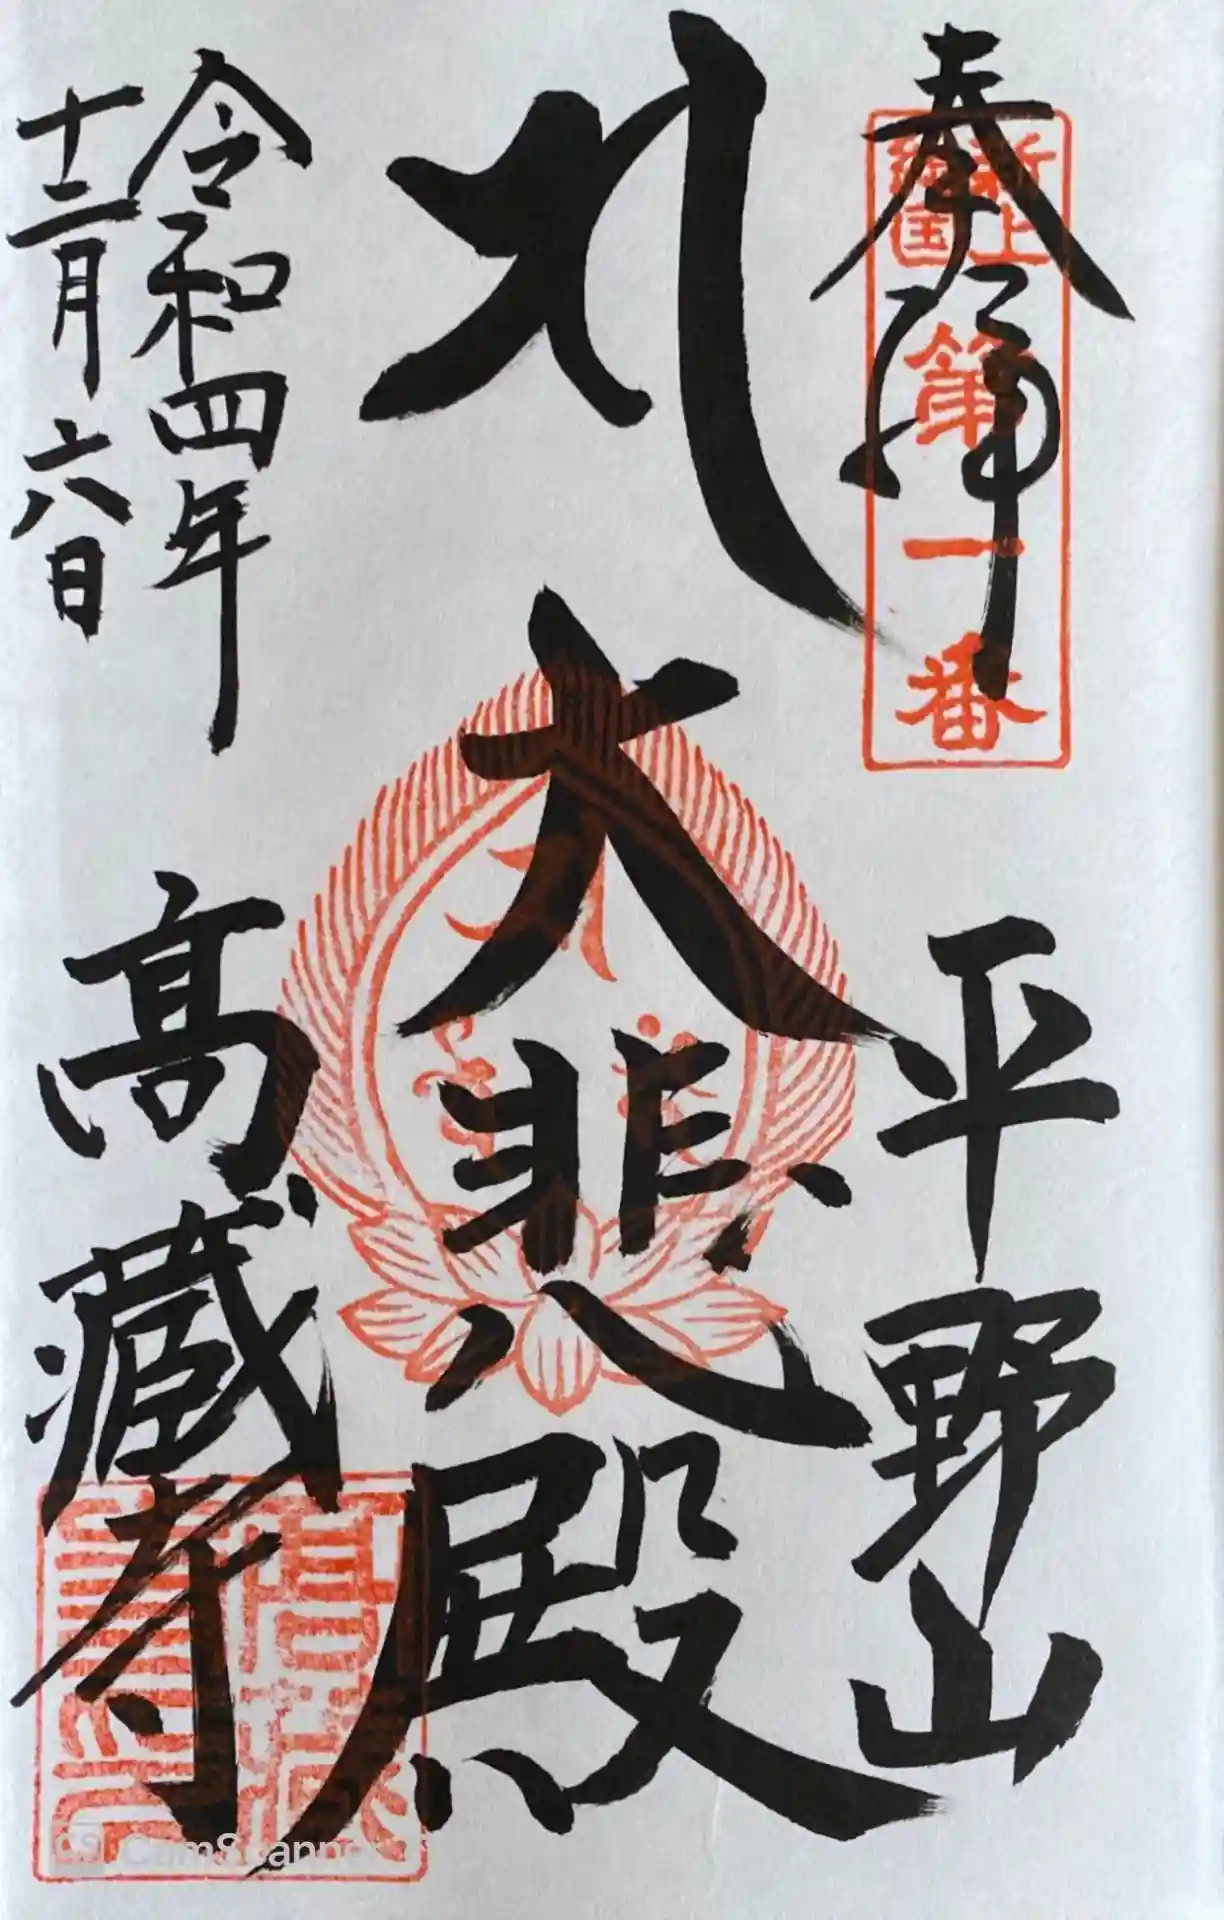 奉拝
新上
総国
第一番
平野山
大悲殿
令和四年
十二月六日
髙藏寺
CS CamScanner